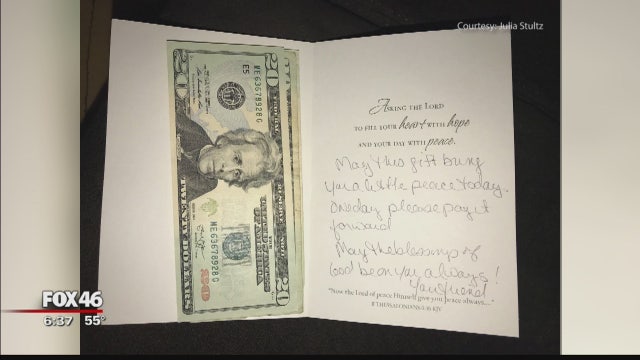 Courtesy: Julia Stultz
20
20
ME63678928G
E5
TWENTY DOLLARS
ME63678928G
THE UNITED STATES
OF AMERICA
20
20
ASKING THE LORD
TO FILL YOUR heart WITH hope
AND YOUR DAY WITH peace.
May this gift bring
you a little peace today.
One day please pay it
forward
May the blessings of
God be on you always!
Your friend
"Now the Lord of peace Himself give you peace always..."
II THESSALONIANS 3:16 KJV
FOX46
6:37 55°